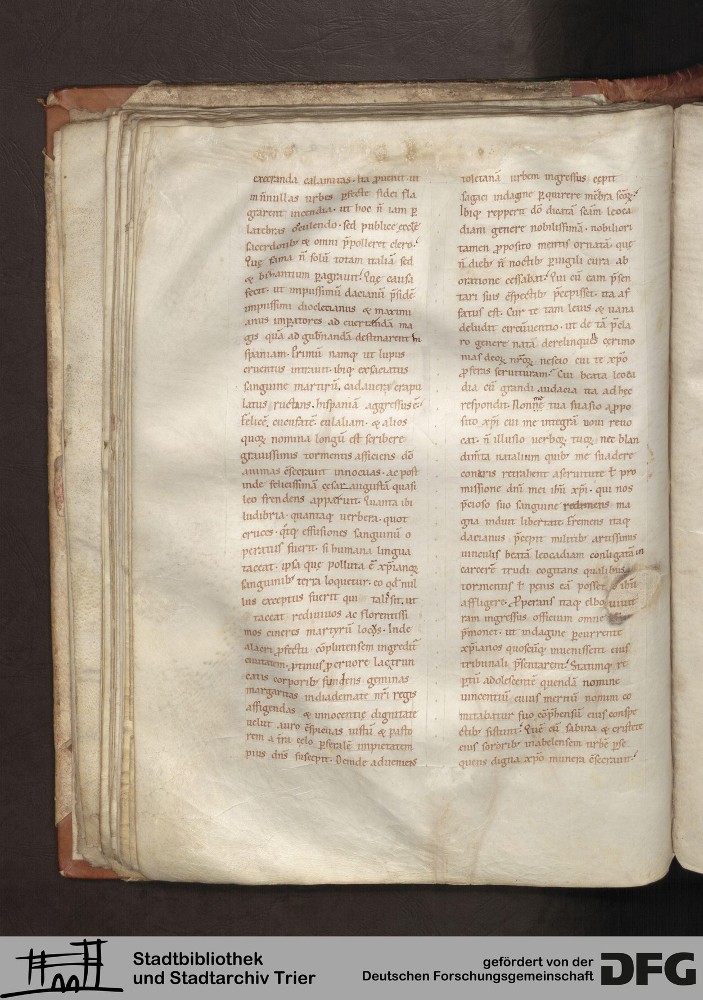 execranda calamitas. Ita ꝓuenit. ut
in n̄nullas urbes ꝑfecte fidei fla
grarent incendia. ut hoc n̄ iam ꝑ
latebras occulendo. sed publice
sacerdotib; & omni p̄polleret clero.
Que fama n̄ solū totam italiā sed
& bizantium ꝑagrauit. Que causa
fecit. ut impiissimū dacianū p̄sidē
impiissimi diocletianus & maximi
anus impatores ad euertendā ma
gis quā ad gub̄nandā destinarent
spaniam. Primū namq; ut lupus
cruentus intrauit. ibiq; exsaciatus
sanguine martirū. cadauera
ructans. hispaniā aggressus ē.
felicē. cucufatē. eulaliam. & alios
quoꝝ nomina longū est scribere
grauissimis tormentis afficiens dō
animas c̄secrauit innocuas. ac post
inde felicissimā cesaraugustā quasi
leo frendens apparuit. Quanta ibi
ludibria. quantaq; uerbera. quot
cruces. effusiones sanguinū o
peratus fuerit. si humana lingua
taceat. ipsa que polluta ē xp̄ianoꝝ
sanguinib; terra loquetur. eo qd nul
lus exceptus fuerit qui
taceat rediuiuos ac florentissi
mos cineres martyrū Inde
alacri ꝓfectu cōplutensem ingredit
ciuitatem. ꝓtinus
corporib; fundens geminas
margaritas in diademate nr̄i regis
affigendas & innocentie dignitate
uelut auro justū & pasto
rem a tr̄a celo ꝑ ferale impietatem
pius dn̄s suscepit. Deinde adueniens
toletanā urbem ingressus cepit
sagaci indagine ꝑquirere mēbra
Ibiq; repperit dō dicatā scām leoca
diam genere nobilissimā. nobiliori
tamen ꝓposito mentis ornatā. que
n̄ dieb; n̄ noctib; ꝑuigili cura ab
oratione cessabat. Qui cū eam p̄sen
tari suis cōspectib; p̄cepisset. ita af
fatus est. Cur te tam leuis & uana
deludit circūuentio. ut de tā p̄cla
ro genere natā cerimo
nias deoꝝ nr̄oꝝ nescio cui te xp̄o
ꝓferas seruituram. Cui beata leoca
dia cū grandi audacia ita ad hec
respondit. Non me tua suasio a ꝓpo
sito xp̄i cui me integrā uoui reuo
cat. n̄ illusio uerboꝝ tuoꝝ. nec blan
natalium quib; me suadere
retrahent a seruitute ł pro
missione dn̄i mei ihū xp̄i. qui nos
p̄cioso suo sanguine redimens ma
gna induit libertate. Fremens itaq;
dacianus p̄cepit militib; artissimis
uinculis beatā leocadiam in
carcere trudi cogitans qualibus
tormentis ł penis eā posset
affligere. Properans itaq; elbo
ram ingressus officium omne
p̄monet. ut indagine ꝑcurrente
xp̄ianos quoscūq; inuenissent eius
tribunali p̄sentarent. Statimq; re
ꝑtū adolescentē quendā nomine
uincentiū cuius meritū nomini co
mitabatur suo cōp̄hensū eius conspe
ctib; sistunt. Que cū sabina & cristete
eius sororib; in abelensem urbē ꝑse
quens digna xp̄o munera c̄secrauit.
Stadtbibliothek
und Stadtarchiv Trier
gefördert von der
Deutschen Forschungsgemeinschaft
DFG